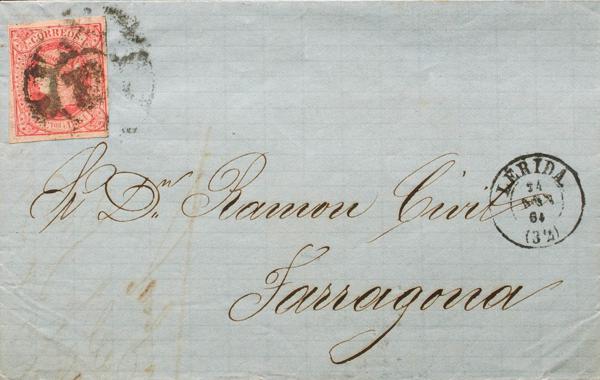 CORREOS
Sr Dn Ramon Civit
Tarragona
LÉRIDA
24
64
(32)